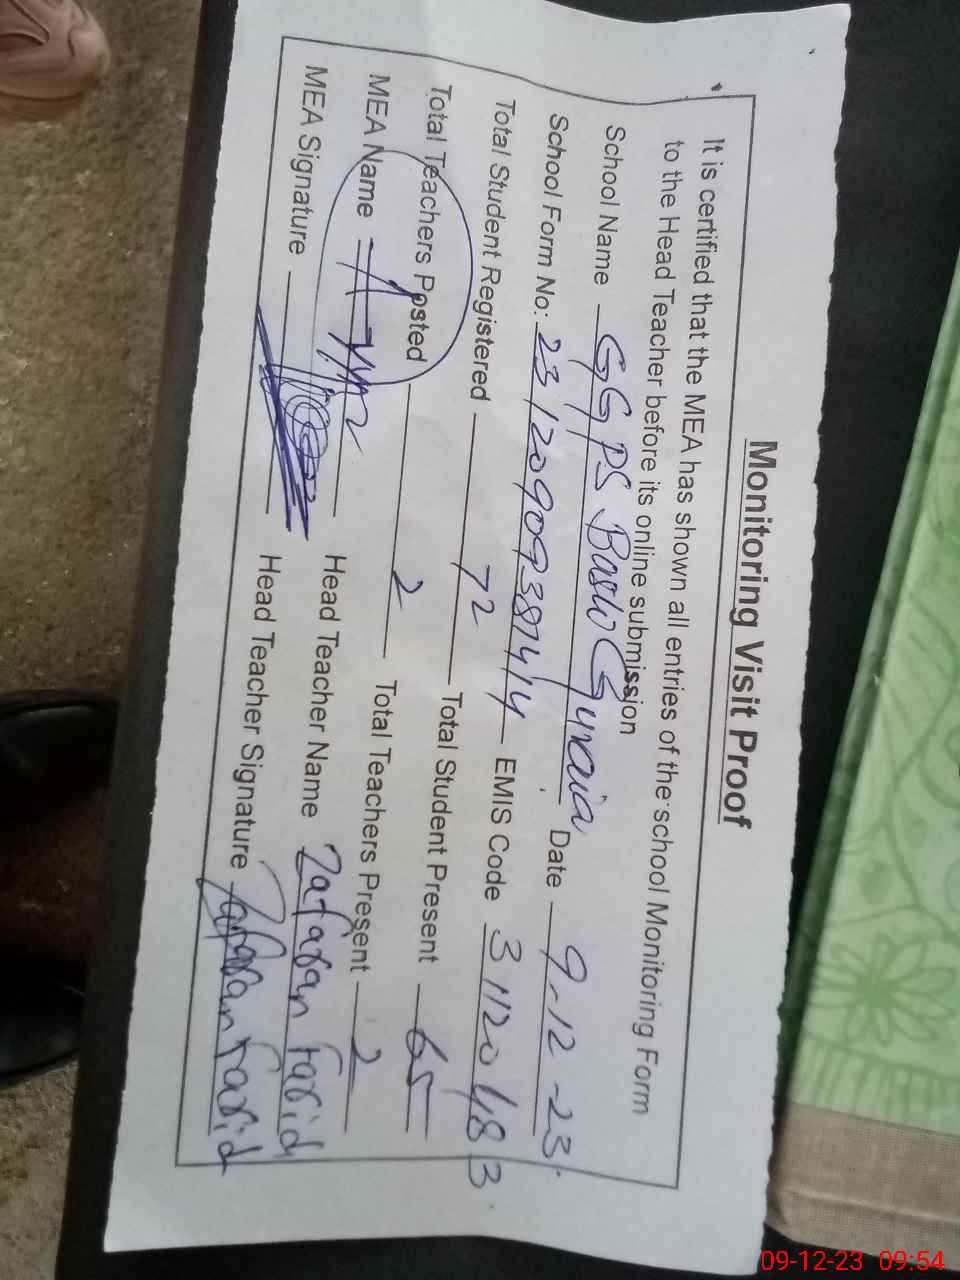 Monitoring Visit Proof
It is certified that the MEA has shown all entries of the school Monitoring Form
to the Head Teacher before its online submission
School Name GGPS Basti Guraia Date 9-12-23.
School Form No: 23120909387414 EMIS Code 31120483
Total Student Registered 72 Total Student Present 65
Total Teachers Posted 2 Total Teachers Present 2
MEA Name Head Teacher Name Zafaran Farid
MEA Signature Head Teacher Signature Zafaran Farid
09-12-23 09:54